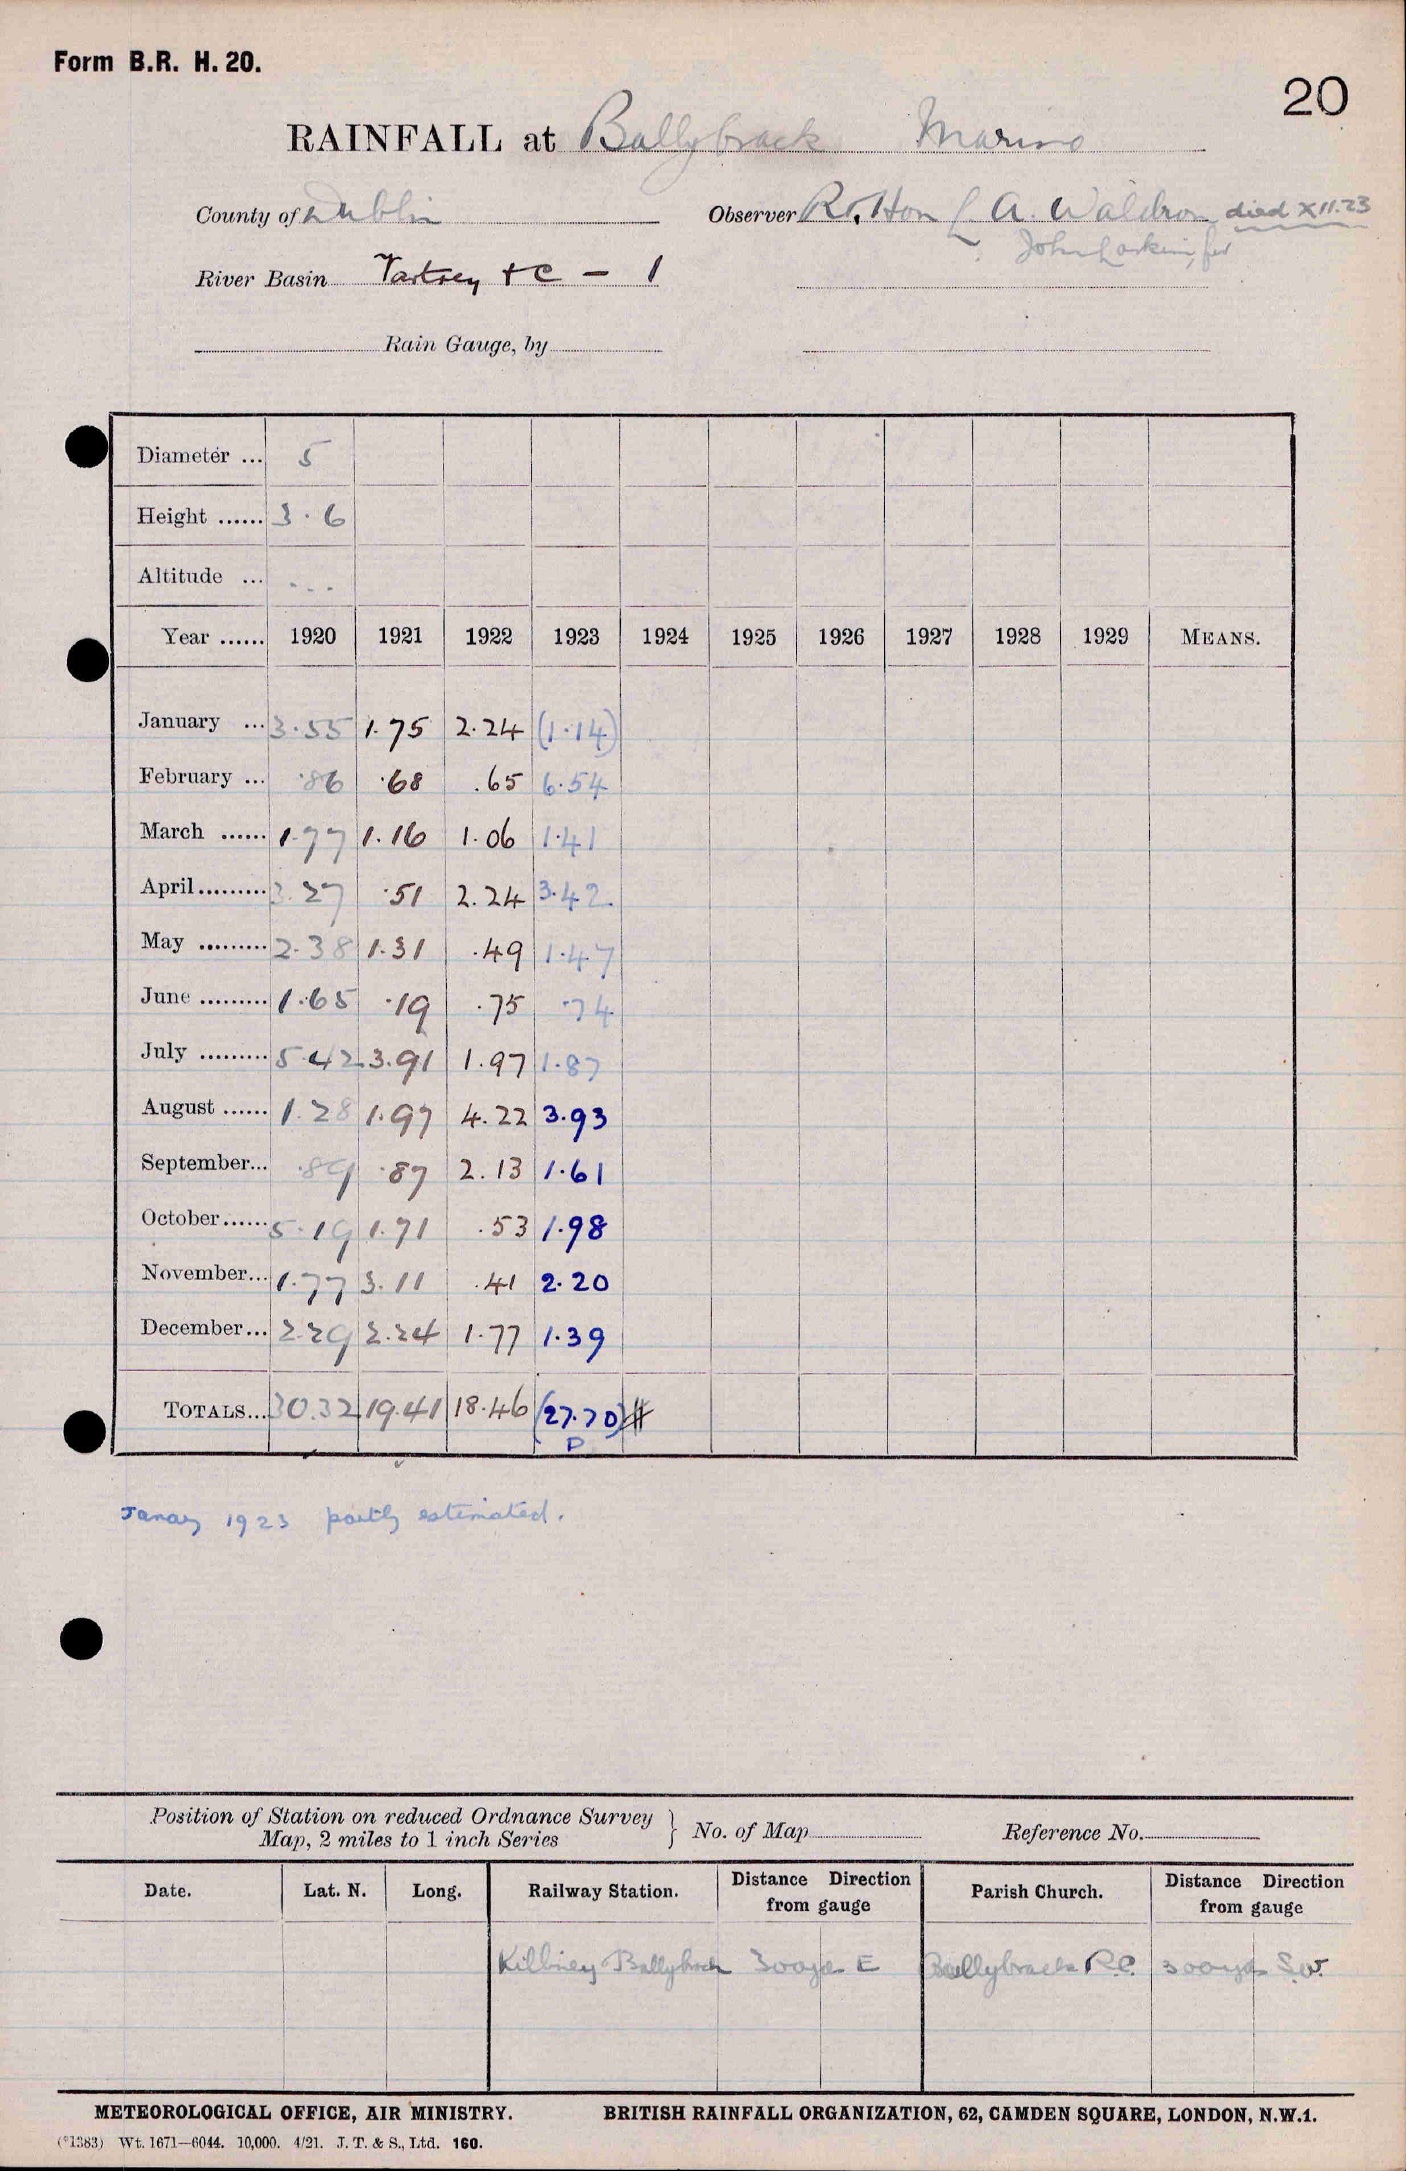 Form B.R. H. 20.
20
RAINFALL at Ballybrack Marino
County of Dublin Observer Rt. Hon L. A. Waldron died XII.23
John Larkin, for
River Basin Vartrey + C - 1
Rain Gauge, by
Diameter ... 5
Height ...... 3.6
Altitude ... ...
Year ...... 1920 1921 1922 1923 1924 1925 1926 1927 1928 1929 MEANS.
January ... 3.55 1.75 2.24 (1.14)
February ... .86 .68 .65 6.54
March ...... 1.77 1.16 1.06 1.41
April ......... 3.27 .51 2.24 3.42
May ......... 2.38 1.31 .49 1.47
June ......... 1.65 .19 .75 .74
July ......... 5.42 3.91 1.97 1.87
August ...... 1.28 1.97 4.22 3.93
September... .89 .87 2.13 1.61
October ...... 5.19 1.71 .53 1.98
November... 1.77 3.11 .41 2.20
December... 2.29 2.24 1.77 1.39
TOTALS... 30.32 19.41 18.46 (27.70) #
P
Janay 1923 partly estimated.
Position of Station on reduced Ordnance Survey
Map, 2 miles to 1 inch Series } No. of Map Reference No.
Date. Lat. N. Long. Railway Station. Distance Direction from gauge Parish Church. Distance Direction from gauge
Killiney Ballybrack 300yds E Ballybrack R.C. 300yds S.W.
METEOROLOGICAL OFFICE, AIR MINISTRY. BRITISH RAINFALL ORGANIZATION, 62, CAMDEN SQUARE, LONDON, N.W.1.
(*1383) Wt. 1671—6044. 10,000. 4/21. J. T. & S., Ltd. 160.